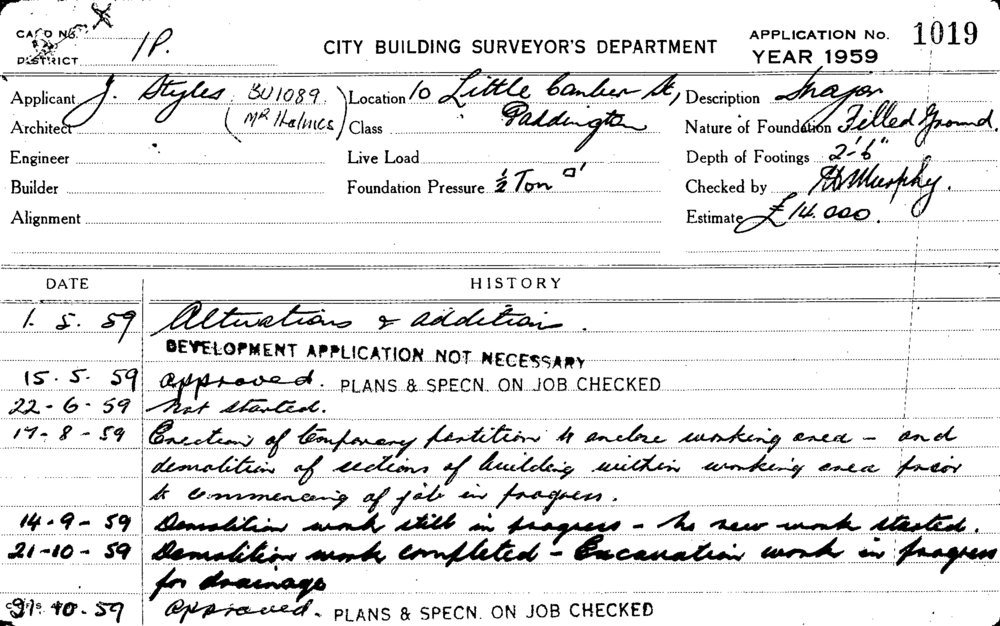 CARD No.
DISTRICT
1P.
CITY BUILDING SURVEYOR'S DEPARTMENT
APPLICATION No. 1019
YEAR 1959
Applicant J. Styles (BU1089. Mr Holmes)
Location 10 Little St, Paddington
Description
Architect
Class
Nature of Foundation Filled Ground.
Engineer
Live Load
Depth of Footings 2'-6"
Builder
Foundation Pressure ½ Ton □'
Checked by Murphy.
Alignment
Estimate £14.000.
DATE HISTORY
1. 5. 59 Alterations & additions.
DEVELOPMENT APPLICATION NOT NECESSARY
15. 5. 59 approved. PLANS & SPECN. ON JOB CHECKED
22-6-59 Not started.
17-8-59 Erection of temporary partition to enclose working area - and
demolition of sections of building within working area prior
to commencing of job in progress.
14-9-59 Demolition work still in progress - No new work started.
21-10-59 Demolition work completed - Excavation work in progress
for drainage
10-59 approved. PLANS & SPECN. ON JOB CHECKED